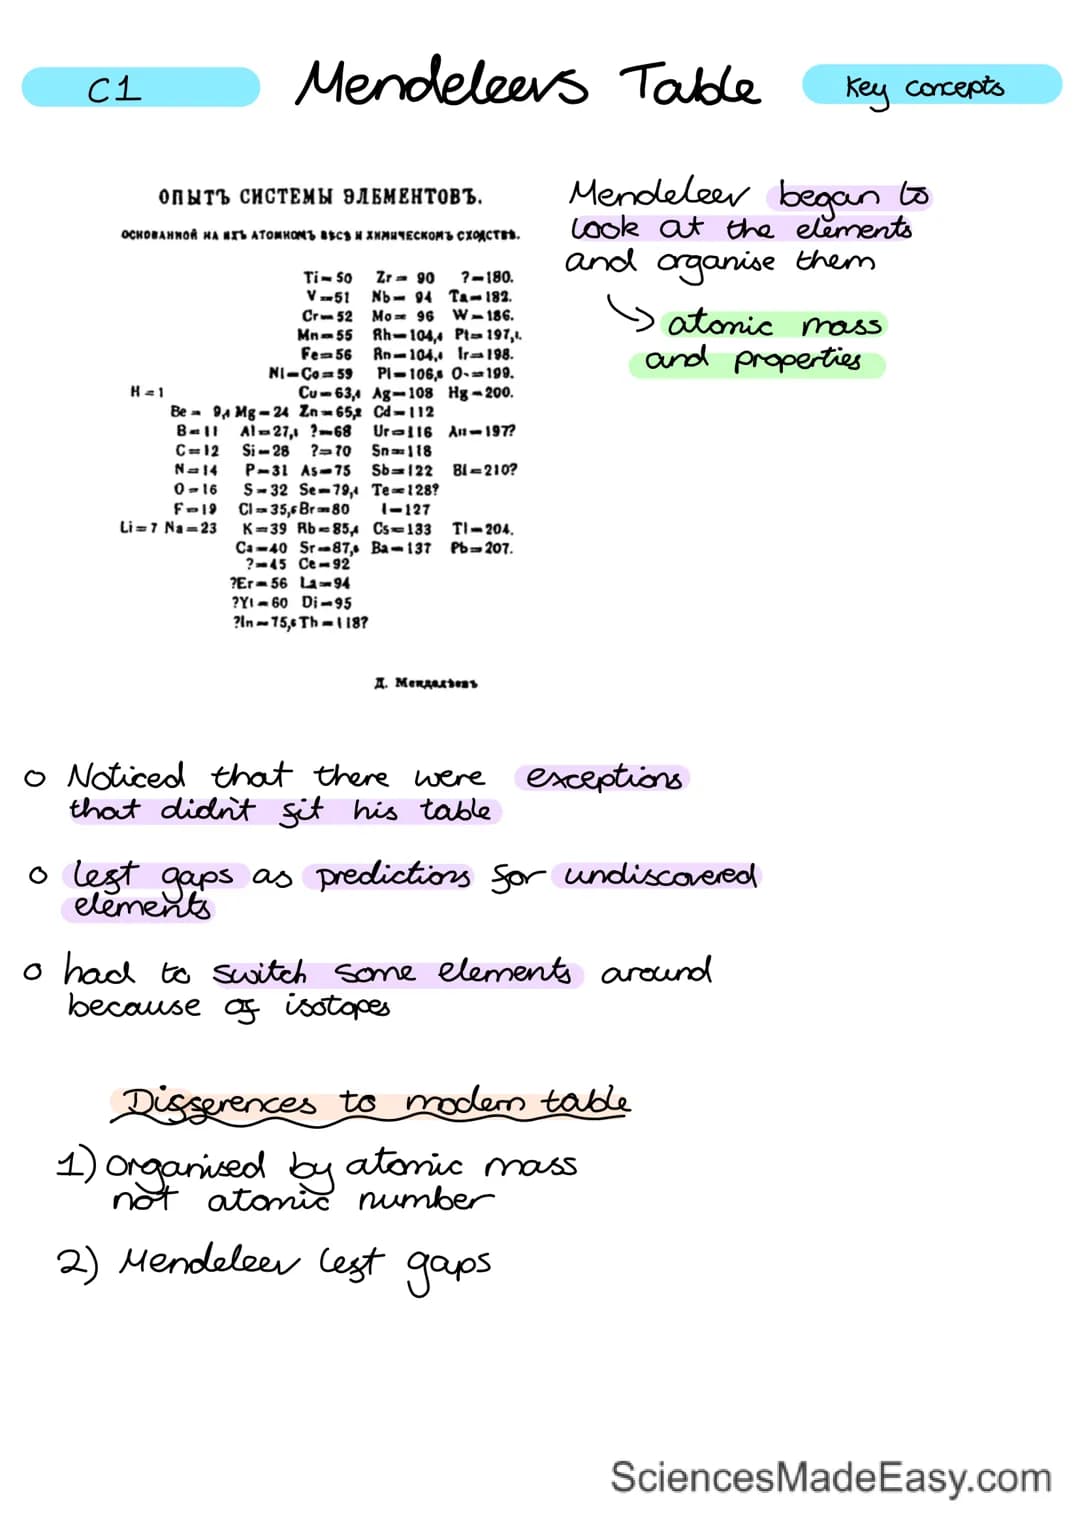 C1
Mendeleevs Table
Key concepts
ОПЫТЪ СИСТЕМЫ ЭЛЕМЕНТОВЪ.
ОСНОВАННОЙ НА ИХЪ АТОМНОМЪ ВѢСѢ И ХИМИЧЕСКОМЪ СХОДСТВѢ.
Ti = 50 Zr = 90 ? = 180.
V = 51 Nb = 94 Ta = 182.
Cr = 52 Mo = 96 W = 186.
Mn = 55 Rh = 104,4 Pt = 197,1.
Fe = 56 Rn = 104,4 Ir = 198.
Ni = Co = 59 Pl = 106,6 O- = 199.
H = 1 Cu = 63,4 Ag = 108 Hg = 200.
Be = 9,4 Mg = 24 Zn = 65,2 Cd = 112
B = 11 Al = 27,1 ? = 68 Ur = 116 Au = 197?
C = 12 Si = 28 ? = 70 Sn = 118
N = 14 P = 31 As = 75 Sb = 122 Bi = 210?
O = 16 S = 32 Se = 79,4 Te = 128?
F = 19 Cl = 35,5 Br = 80 I = 127
Li = 7 Na = 23 K = 39 Rb = 85,4 Cs = 133 Tl = 204.
Ca = 40 Sr = 87,6 Ba = 137 Pb = 207.
? = 45 Ce = 92
?Er = 56 La = 94
?Yt = 60 Di = 95
?In = 75,6 Th = 118?
Д. Менделѣевъ
Mendeleev began to
look at the elements
and organise them
atomic mass
and properties
Noticed that there were exceptions
that didn't fit his table
left gaps as predictions for undiscovered
elements
had to switch some elements around
because of isotopes
Differences to modern table
1) Organised by atomic mass
not atomic number
2) Mendeleev left gaps
SciencesMadeEasy.com